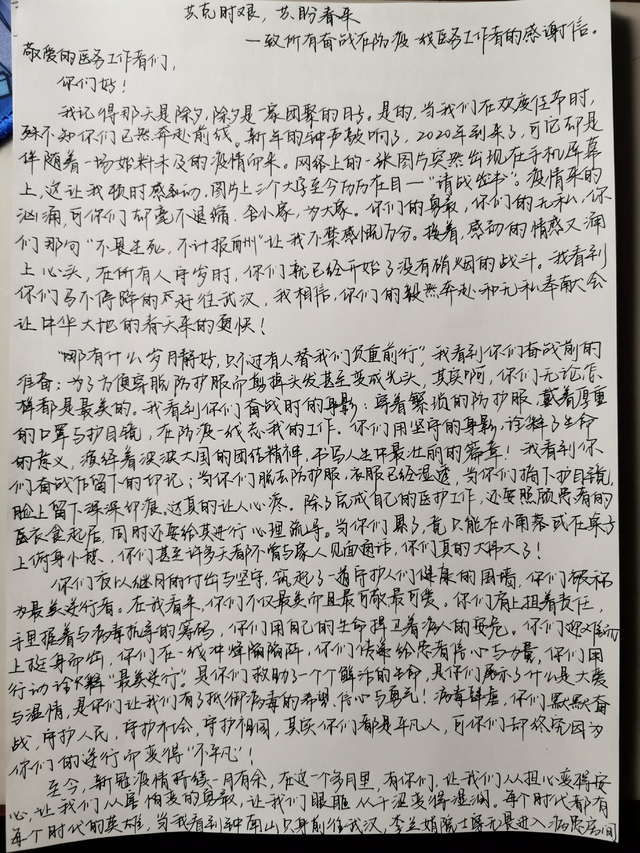 共克时艰，共盼春来
一致所有奋战在防疫一线医务工作者的感谢信。
敬爱的医务工作者们，
你们好！
我记得那天是除夕，除夕是一家团聚的日子。是的，当我们在欢度佳节时，
殊不知你们已然奔赴前线。新年的钟声敲响了，2020年到来了，可它却是
伴随着一场始料未及的疫情而来。网络上的一张图片突然出现在手机屏幕
上，这让我顿时感到动，图片上三个大字至今历历在目—“请战书”。疫情来的
汹涌，可你们却毫不退缩，舍小家，为大家。你们的勇敢，你们的无私，你
们那句“不畏生死，不计报酬”让我不禁感慨万分。接着，感动的情感又涌
上心头，在所有人守岁时，你们就已经开始了没有硝烟的战斗。我看到
你们马不停蹄的赶往武汉，我相信，你们的毅然奔赴和无私奉献会
让中华大地的春天来的更快！
“哪有什么岁月静好，只不过有人替我们负重前行”，我看到你们奋战前的
准备：为了方便穿脱防护服而剪掉头发甚至变成光头，其实啊，你们无论怎
样都是最美的。我看到你们奋战时的身影：穿着繁琐的防护服，戴着厚重
的口罩与护目镜，在防疫一线忘我的工作。你们用坚守的身影，诠释了生命
的意义，演绎着泱泱大国的团结精神，书写人生中最壮丽的篇章！我看到你
们奋战后留下的印记；当你们脱去防护服，衣服已经湿透，当你们摘下护目镜，
脸上留下深深印痕。这真的让人心疼。除了完成自己的医护工作，还要照顾患者的
医衣食起居，同时还要给其进行心理疏导。当你们累了，竟只能在小角落或在桌子
上俯身小憩，你们甚至许多天都不曾与家人见面通话，你们真的太伟大了！
你们夜以继日的付出与坚守，筑起了一道守护人们健康的围墙，你们被称
为最美逆行者。在我看来，你们不仅最美而且最可敬最可爱。你们肩上担着责任，
手里握着与病毒抗争的筹码，你们用自己的生命捍卫着病人的安危。你们迎难而
上挺身而出，你们在一线冲锋陷阵，你们传递给患者信心与力量，你们用
行动诠释“最美逆行”。是你们救助了一个个鲜活的生命，是你们展示了什么是大爱
与温情，是你们让我们有了抵御病毒的希望、信心与勇气！病毒肆虐，你们默默奋
战，守护人民，守护社会，守护祖国，其实你们都是平凡人，可你们却终究因为
你们的逆行而变得“不平凡”！
至今，新冠疫情持续一月有余，在这一个多月里，有你们，让我们从担心变得安
心，让我们从害怕变的勇敢，让我们眼眶从干涩变得湿润。每个时代都有
每个时代的英雄，当我看到钟南山只身前往武汉，李兰娟院士毫无畏进入病患房间